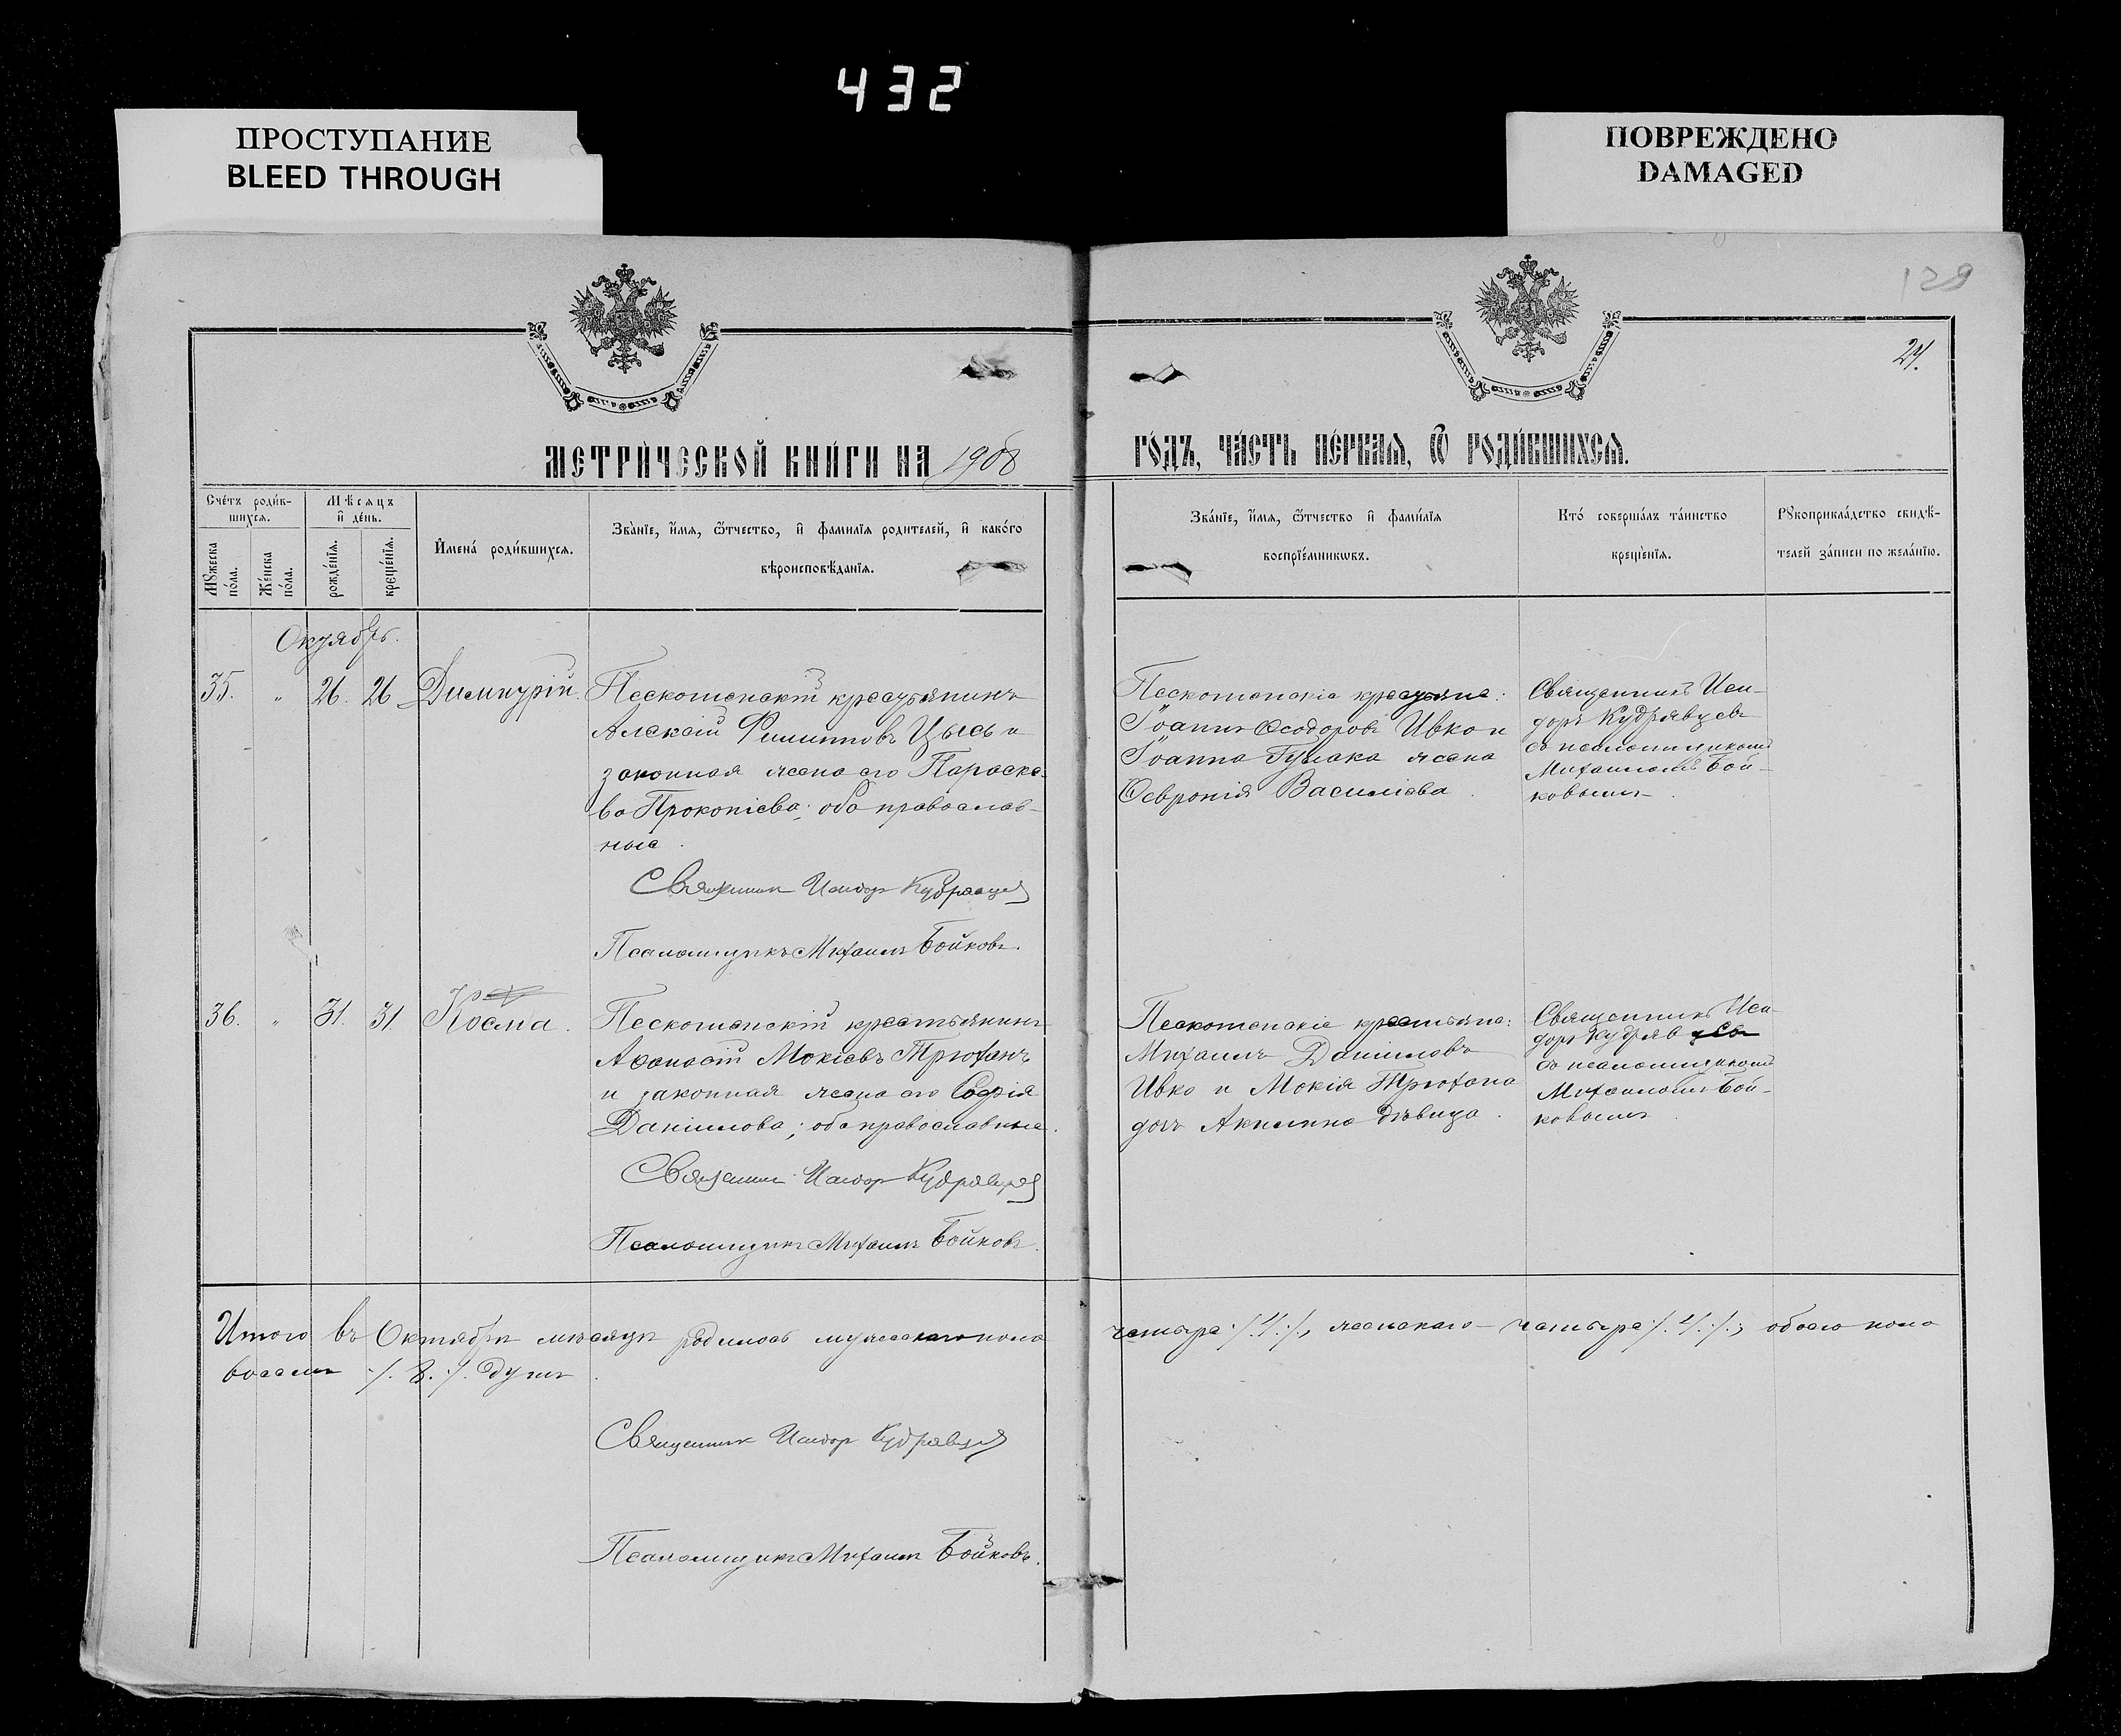 432
ПРОСТУПАНИЕ
BLEED THROUGH
ПОВРЕЖДЕНО
DAMAGED
129
24.
МЕТРИ́ЧЕСКОЙ КНИ́ГИ НА 1908
ГО́ДЪ, ЧА́СТЬ ПЕ́РВАѦ, Ѿ РОДИ́ВШИХСѦ.
Сче́тъ роди́в-
шихсѧ.
Мѣсѧцъ
и҆ де́нь.
Мꙋжеска
по́ла.
Же́нска
по́ла.
рожде́нїѧ.
креще́нїѧ.
И҆мена̀ роди́вшихсѧ.
Зва́нїе, и҆́мѧ, ѻ҆́тчество, и҆ фамилїѧ родителей, и҆ како́гѡ
вѣроисповѣ́данїѧ.
Зва́нїе, и҆́мѧ, ѻ҆́тчество и҆ фами́лїѧ
воспрїе́мникѡвъ.
Кто̀ соверша́лъ та́инство
креще́нїѧ.
Рꙋкоприкла́дство свидѣ́-
телей за́писи по жела́нїю.
Октябрь.
35. " 26. 26 Димитрій.
Пескошенскій крестьянинъ
Алексій Филипповъ Цысь и
законная жена его Параске-
ва Прокопіева; оба православ-
ные.
Священник Исидор Кудрявцев
Псаломщикъ Михаилъ Бойковъ.
Пескошенскіе крестьяне:
Іоаннъ Ѳеодоровъ Ивко и
Іоанна Гушака жена
Ѳевронія Васильева.
Священникъ Иси-
доръ Кудрявцевъ
съ псаломщикомъ
Михаиломъ Бой-
ковымъ.
36. " 31. 31 Косма.
Пескошенскій крестьянинъ
Аѳанасій Мокіевъ Трюханъ
и законная жена его Софія
Даніилова; оба православные.
Священник Исидор Кудрявцев
Псаломщикъ Михаилъ Бойковъ.
Пескошенскіе крестьяне:
Михаилъ Даніиловъ
Ивко и Мокія Трюхана
дочь Акилина дѣвица.
Священникъ Иси-
доръ Кудрявцевъ
съ псаломщикомъ
Михаиломъ Бой-
ковымъ.
Итого въ Октябрѣ мѣсяцѣ родилось мужескаго пола четыре /.4./., женскаго — четыре /.4./.; обоего пола
восемь /.8./. душъ.
Священник Исидор Кудрявцев
Псаломщикъ Михаилъ Бойковъ.